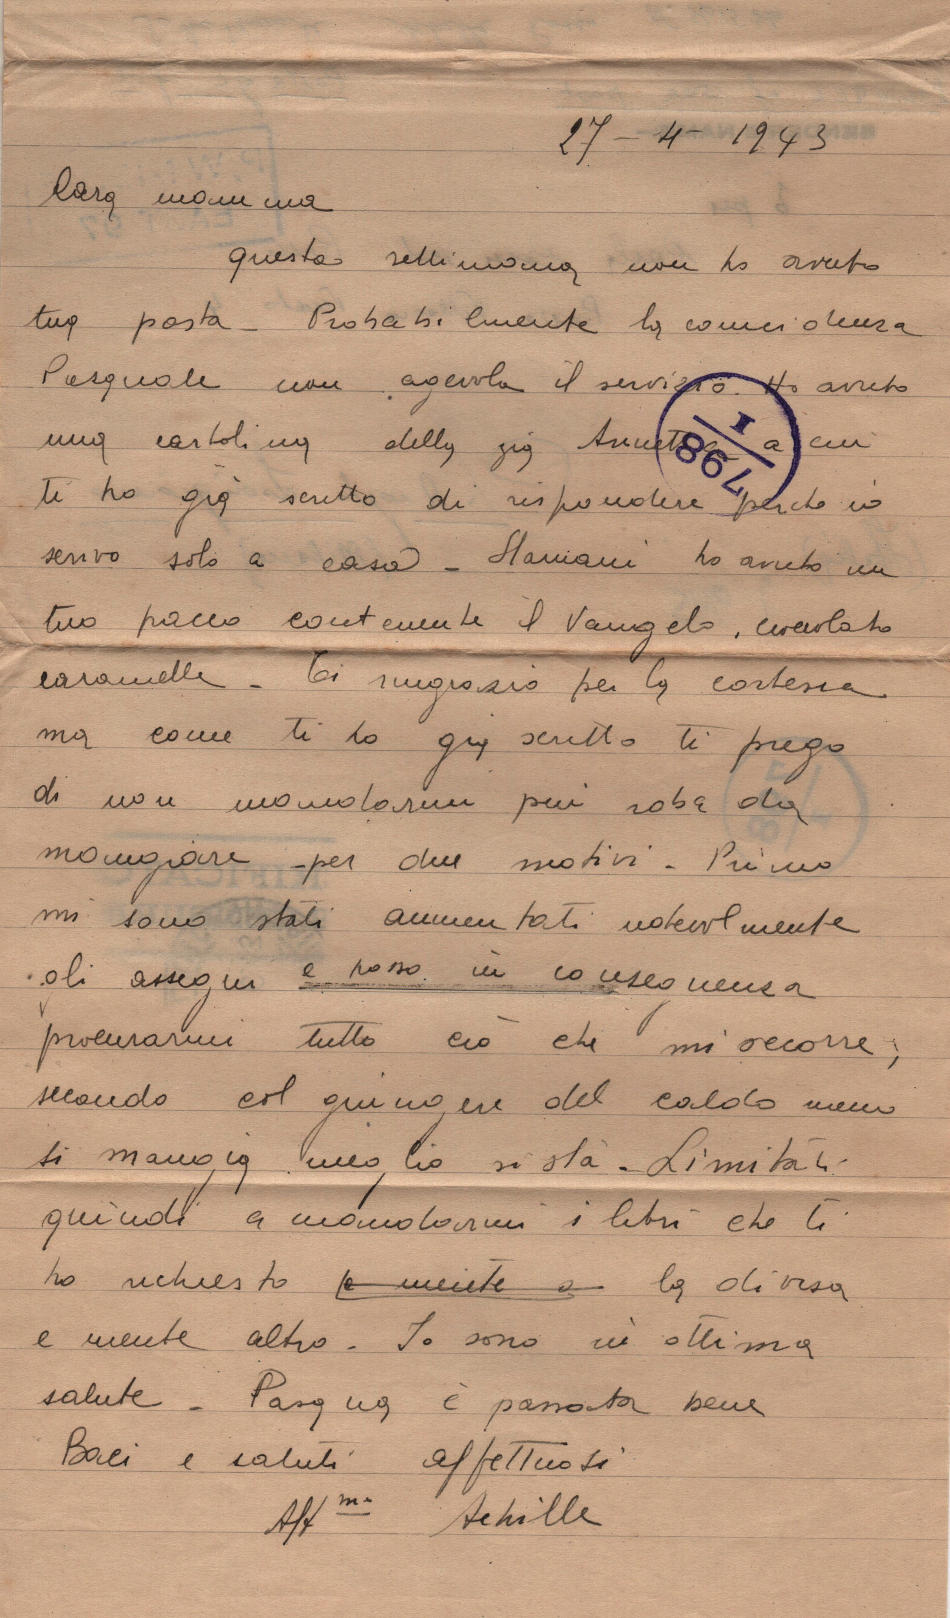 27 - 4 - 1943
Cara mamma
questa settimana non ho avuto
tua posta - Probabilmente la coincidenza
Pasquale non agevola il servizio. Ho avuto
una cartolina della zia Annetta a cui
ti ho già scritto di rispondere perché io
scrivo solo a casa - Stamani ho avuto un
tuo pacco contenente il Vangelo, cioccolato
caramelle - Ti ringrazio per la cortesia
ma come ti ho già scritto ti prego
di non mandarmi più roba da
mangiare per due motivi - Primo
mi sono stati aumentati notevolmente
gli assegni e posso in conseguenza
procurarmi tutto ciò che mi occorre;
secondo col giungere del caldo meno
si mangia meglio si sta - Limitati
quindi a mandarmi i libri che ti
ho richiesto e niente la divisa
e niente altro - Io sono in ottima
salute - Pasqua è passata bene
Baci e saluti affettuosi
Aff mo Achille
I
798